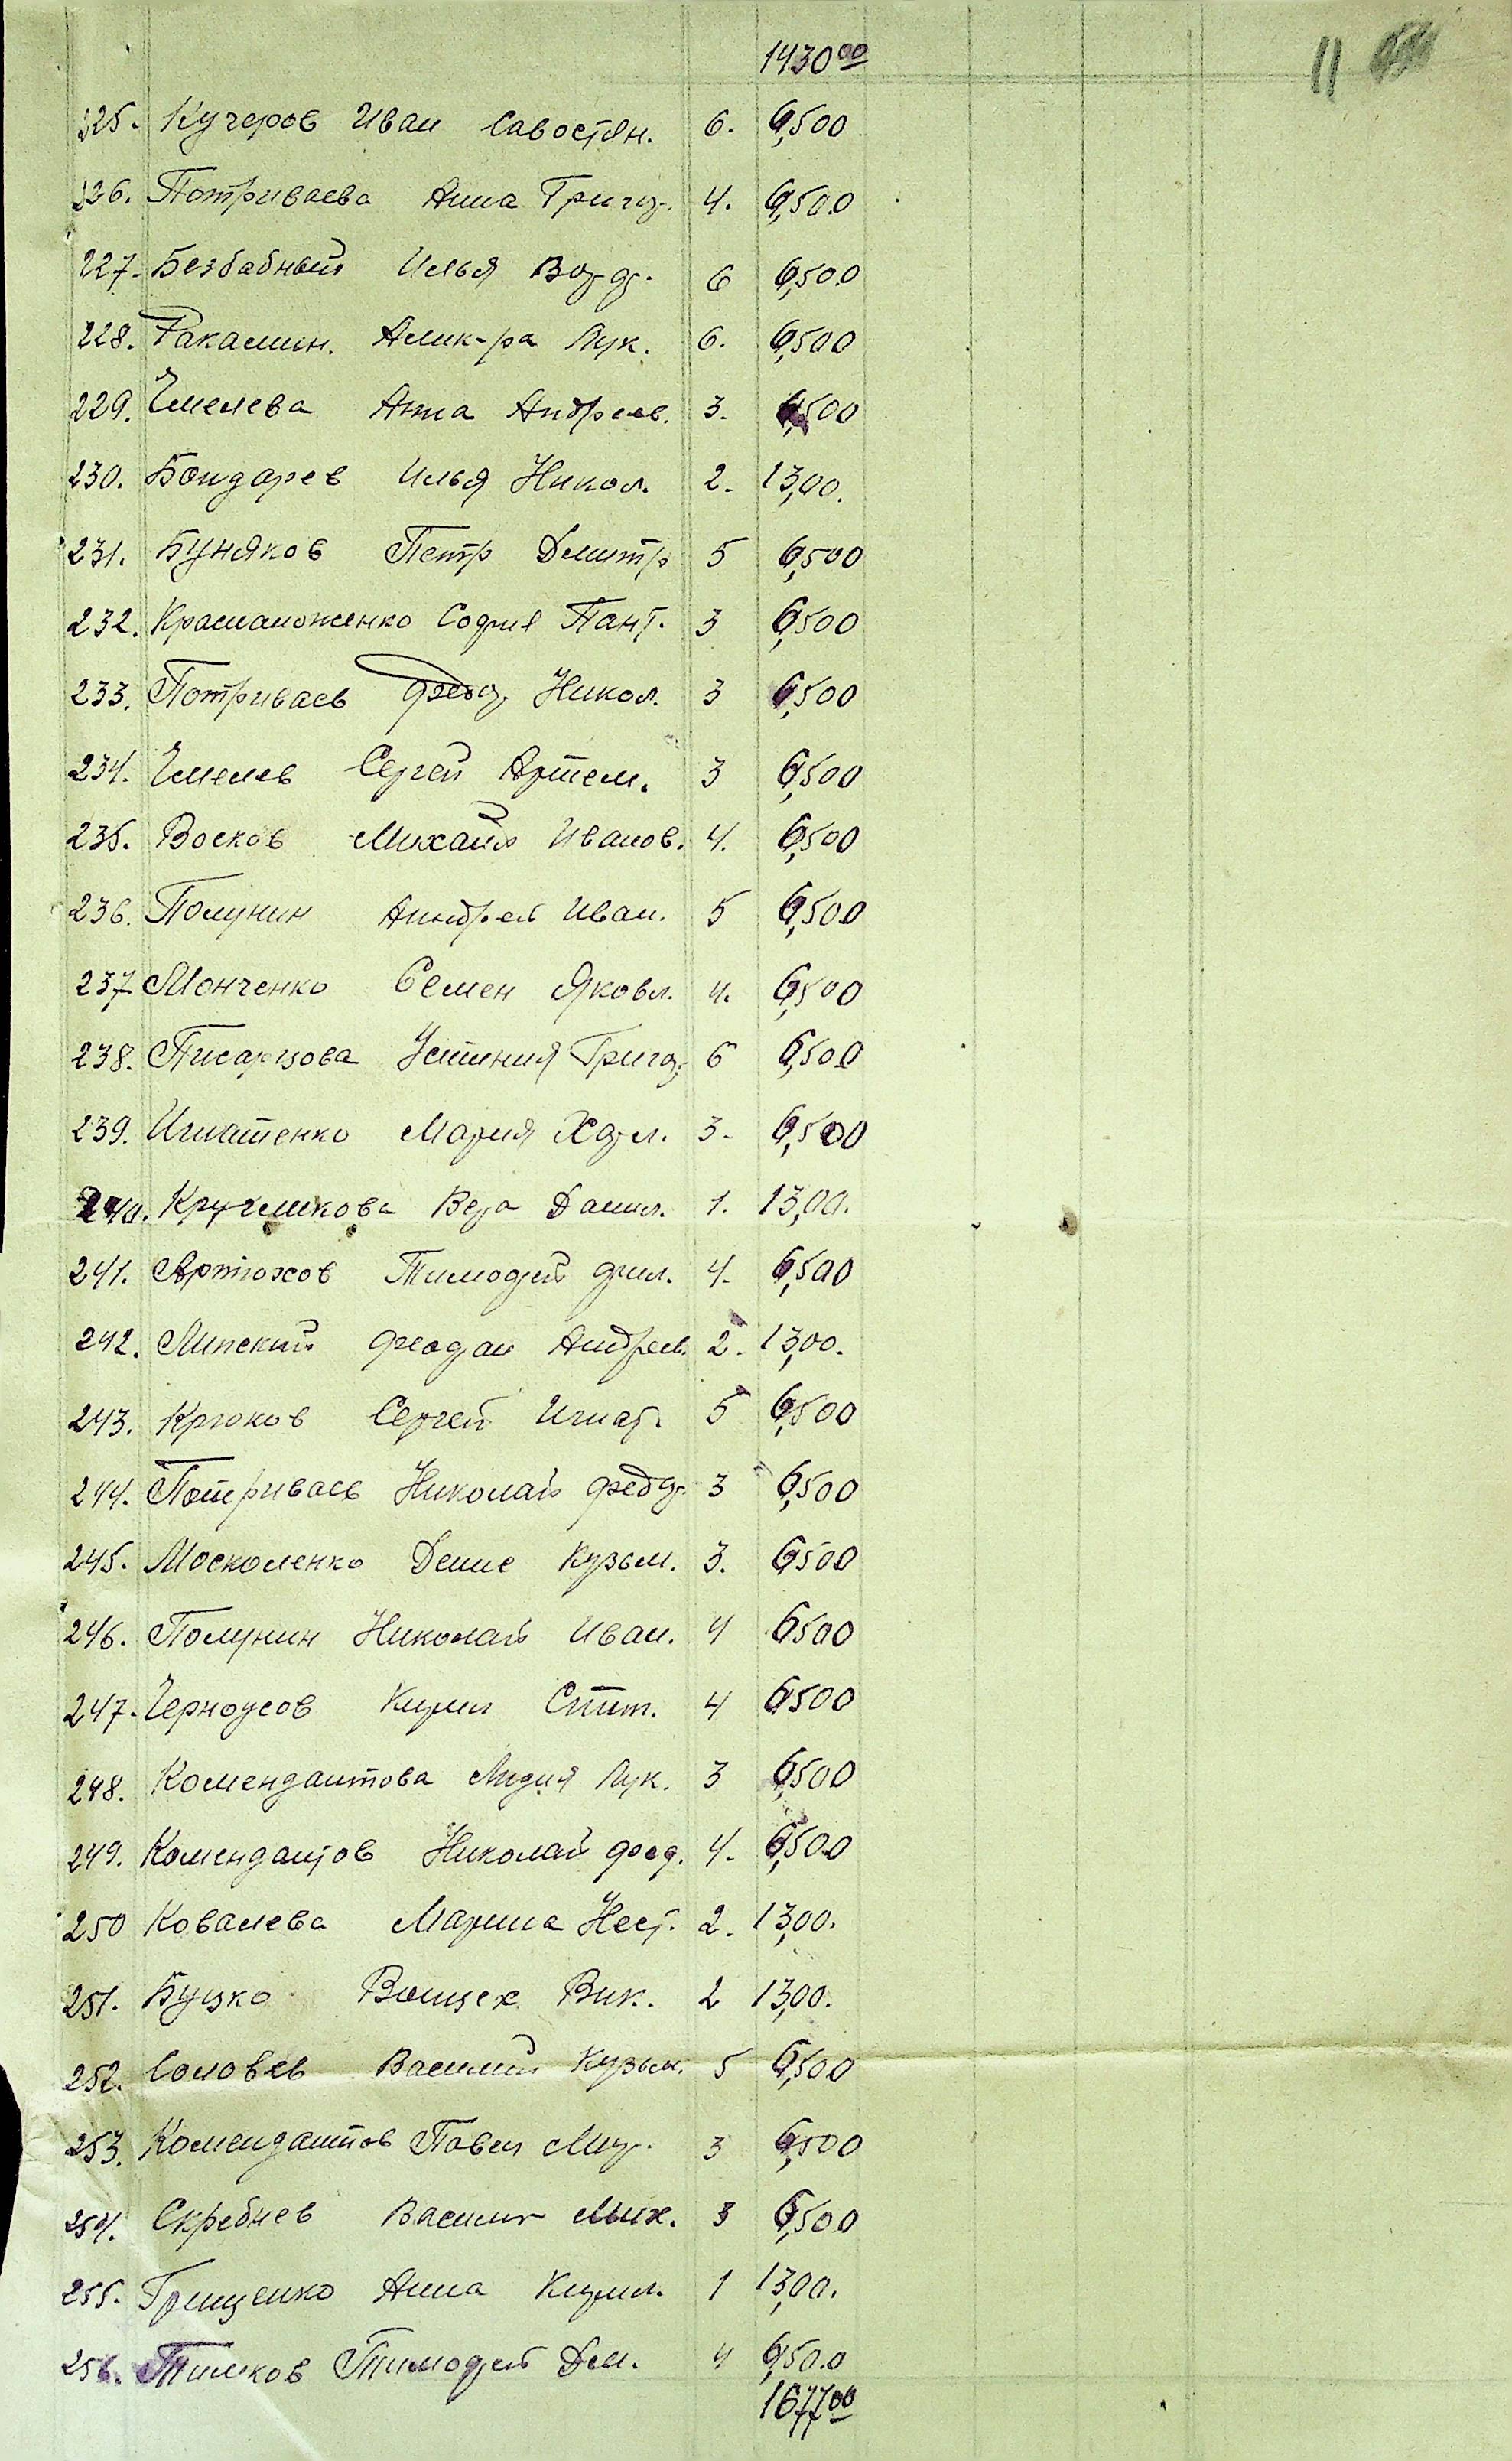 1430 00
11
225. Кучеров Иван Савостян. 6. 6,500
226. Потриваева Анна Григор. 4. 6,500
227. Безбабный Илья 6 6,500
228. Алик-ра Лук. 6. 6,500
229. Чмелева Анна Андреев. 3. 6,500
230. Бондарев Илья Никол. 2. 13,00.
231. Буняков Петр Дмитр 5 6,500
232. София Пант. 3 6,500
233. Потриваев Федор Никол. 3 6,500
234. Чмелев Сергей Артем. 3 6,500
235. Восков Михаил Иванов. 4. 6,500
236. Полунин Андрей Иван. 5 6,500
237 Монченко Семен Яковл. 4. 6,500
238. Писарцова Устиния Григор. 6 6,500
239. Игнатенко Мария 3. 6,500
240. Вера Данил. 1. 13,00.
241. Артюхов Тимофей Фил. 4. 6,500
242. Липский Андреев. 2. 13,00.
243. Крюков Сергей Игнат. 5 6,500
244. Потриваев Николай Федор. 3 6,500
245. Москоленко Денис Кузьм. 3. 6500
246. Полунин Николай Иван. 4 6500
247. Черноусов Кирил 4 6500
248. Комендантова Лидия Лук. 3 6,500
249. Комендантов Николай Фед. 4. 6,500
250 Ковалева Марина Нест. 2. 13,00.
251. Буцко Войцех Вик. 2 13,00.
252. Соловев Василий Кузьм. 5 6,500
253. Комендантов Павел 3 6,500
254. Скребнев Василий Мих. 3 6,500
255. Грищенко Анна Кирил. 1 13,00.
256. Тимков Тимофей Дем. 4 6,500
1677 00